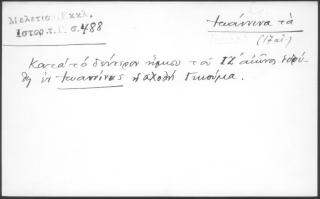 Μελετίου Εκκλ.
Ιστορ. τ. Γ. σ. 488
Ιωάννινα τά
(17 αἰ.)
Κατά τό δεύτερον ήμισυ του ΙΖ αιώνος ιδρύ-
θη εν Ιωαννίνοις η σχολή Γκιούμα.